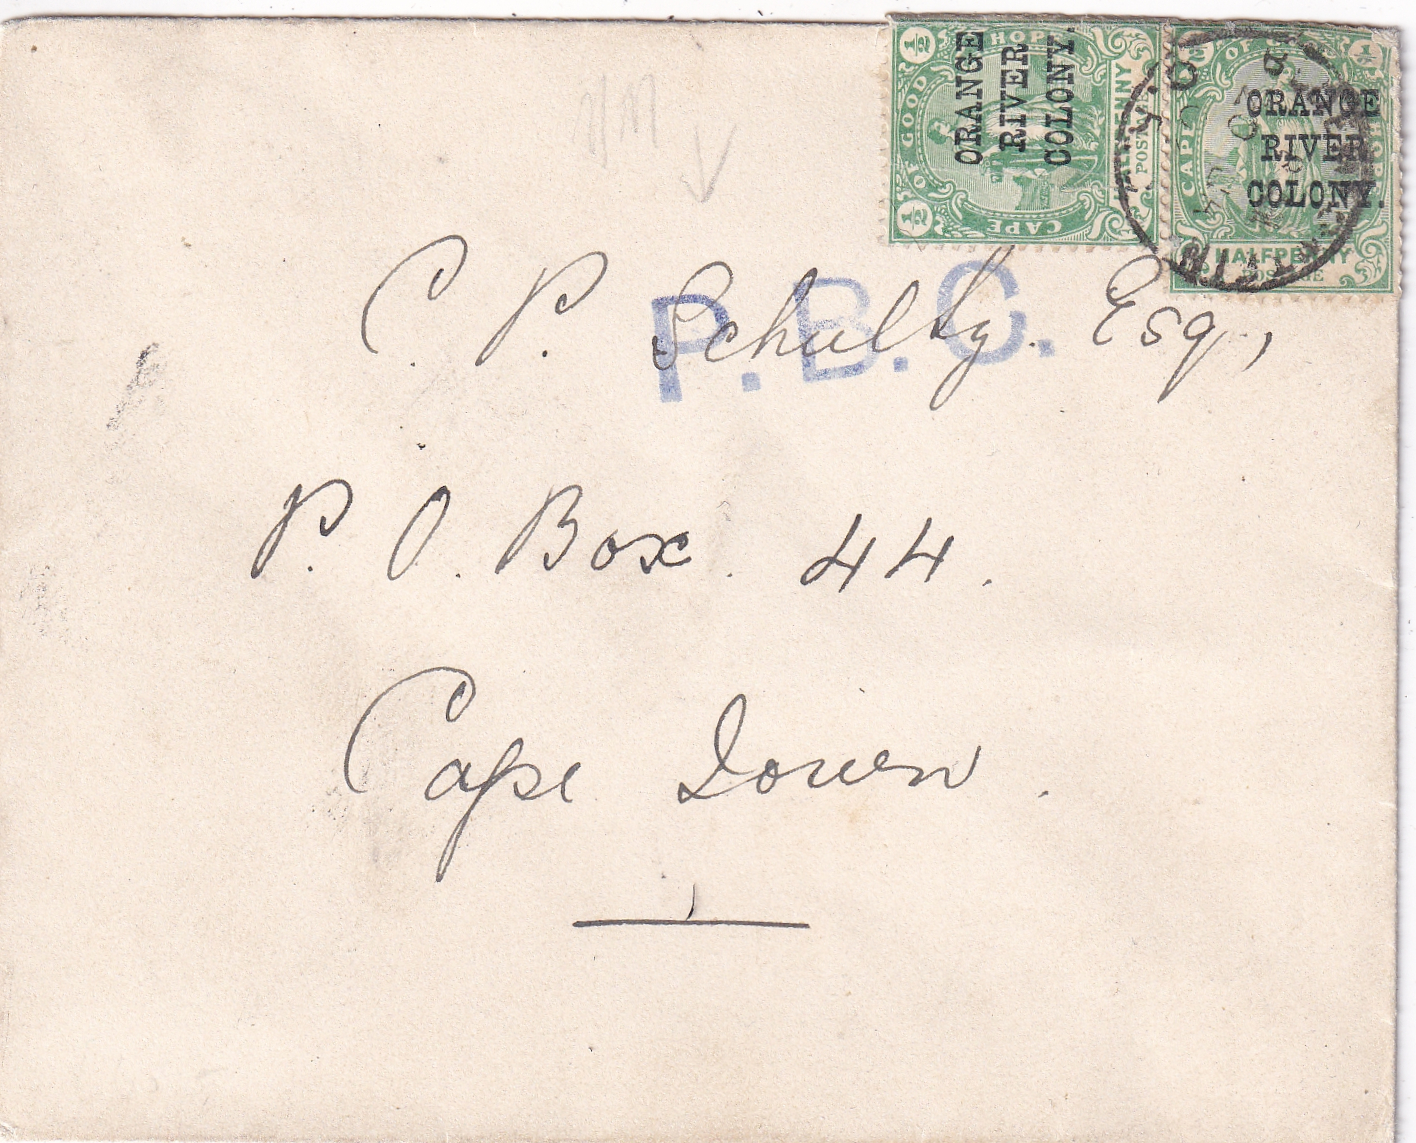 ORANGE
RIVER
COLONY.
½
½
CAPE OF GOOD HOPE
HALFPENNY
POSTAGE
ORANGE
RIVER
COLONY.
½
CAPE OF
HALFPENNY
POSTAGE
P.B.C.
C. P. Schultz. Esq,
P. O. Box. 44.
Cape Town.